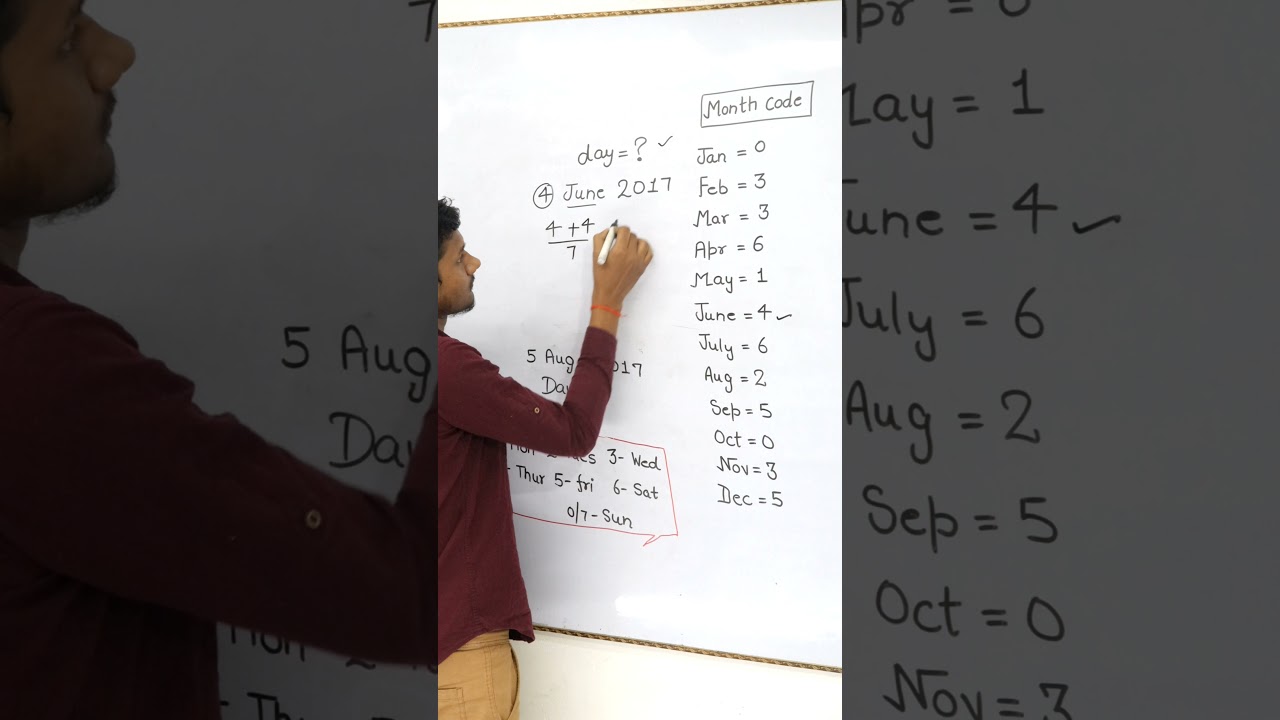 Month Code
day = ? ✓
④ June 2017
4 + 4
7
5 Aug 2017
Day
Mon 2- Tues 3- Wed
Thur 5- fri 6- Sat
0/7- Sun
Jan = 0
Feb = 3
Mar = 3
Apr = 6
May = 1
June = 4 ✓
July = 6
Aug = 2
Sep = 5
Oct = 0
Nov = 3
Dec = 5